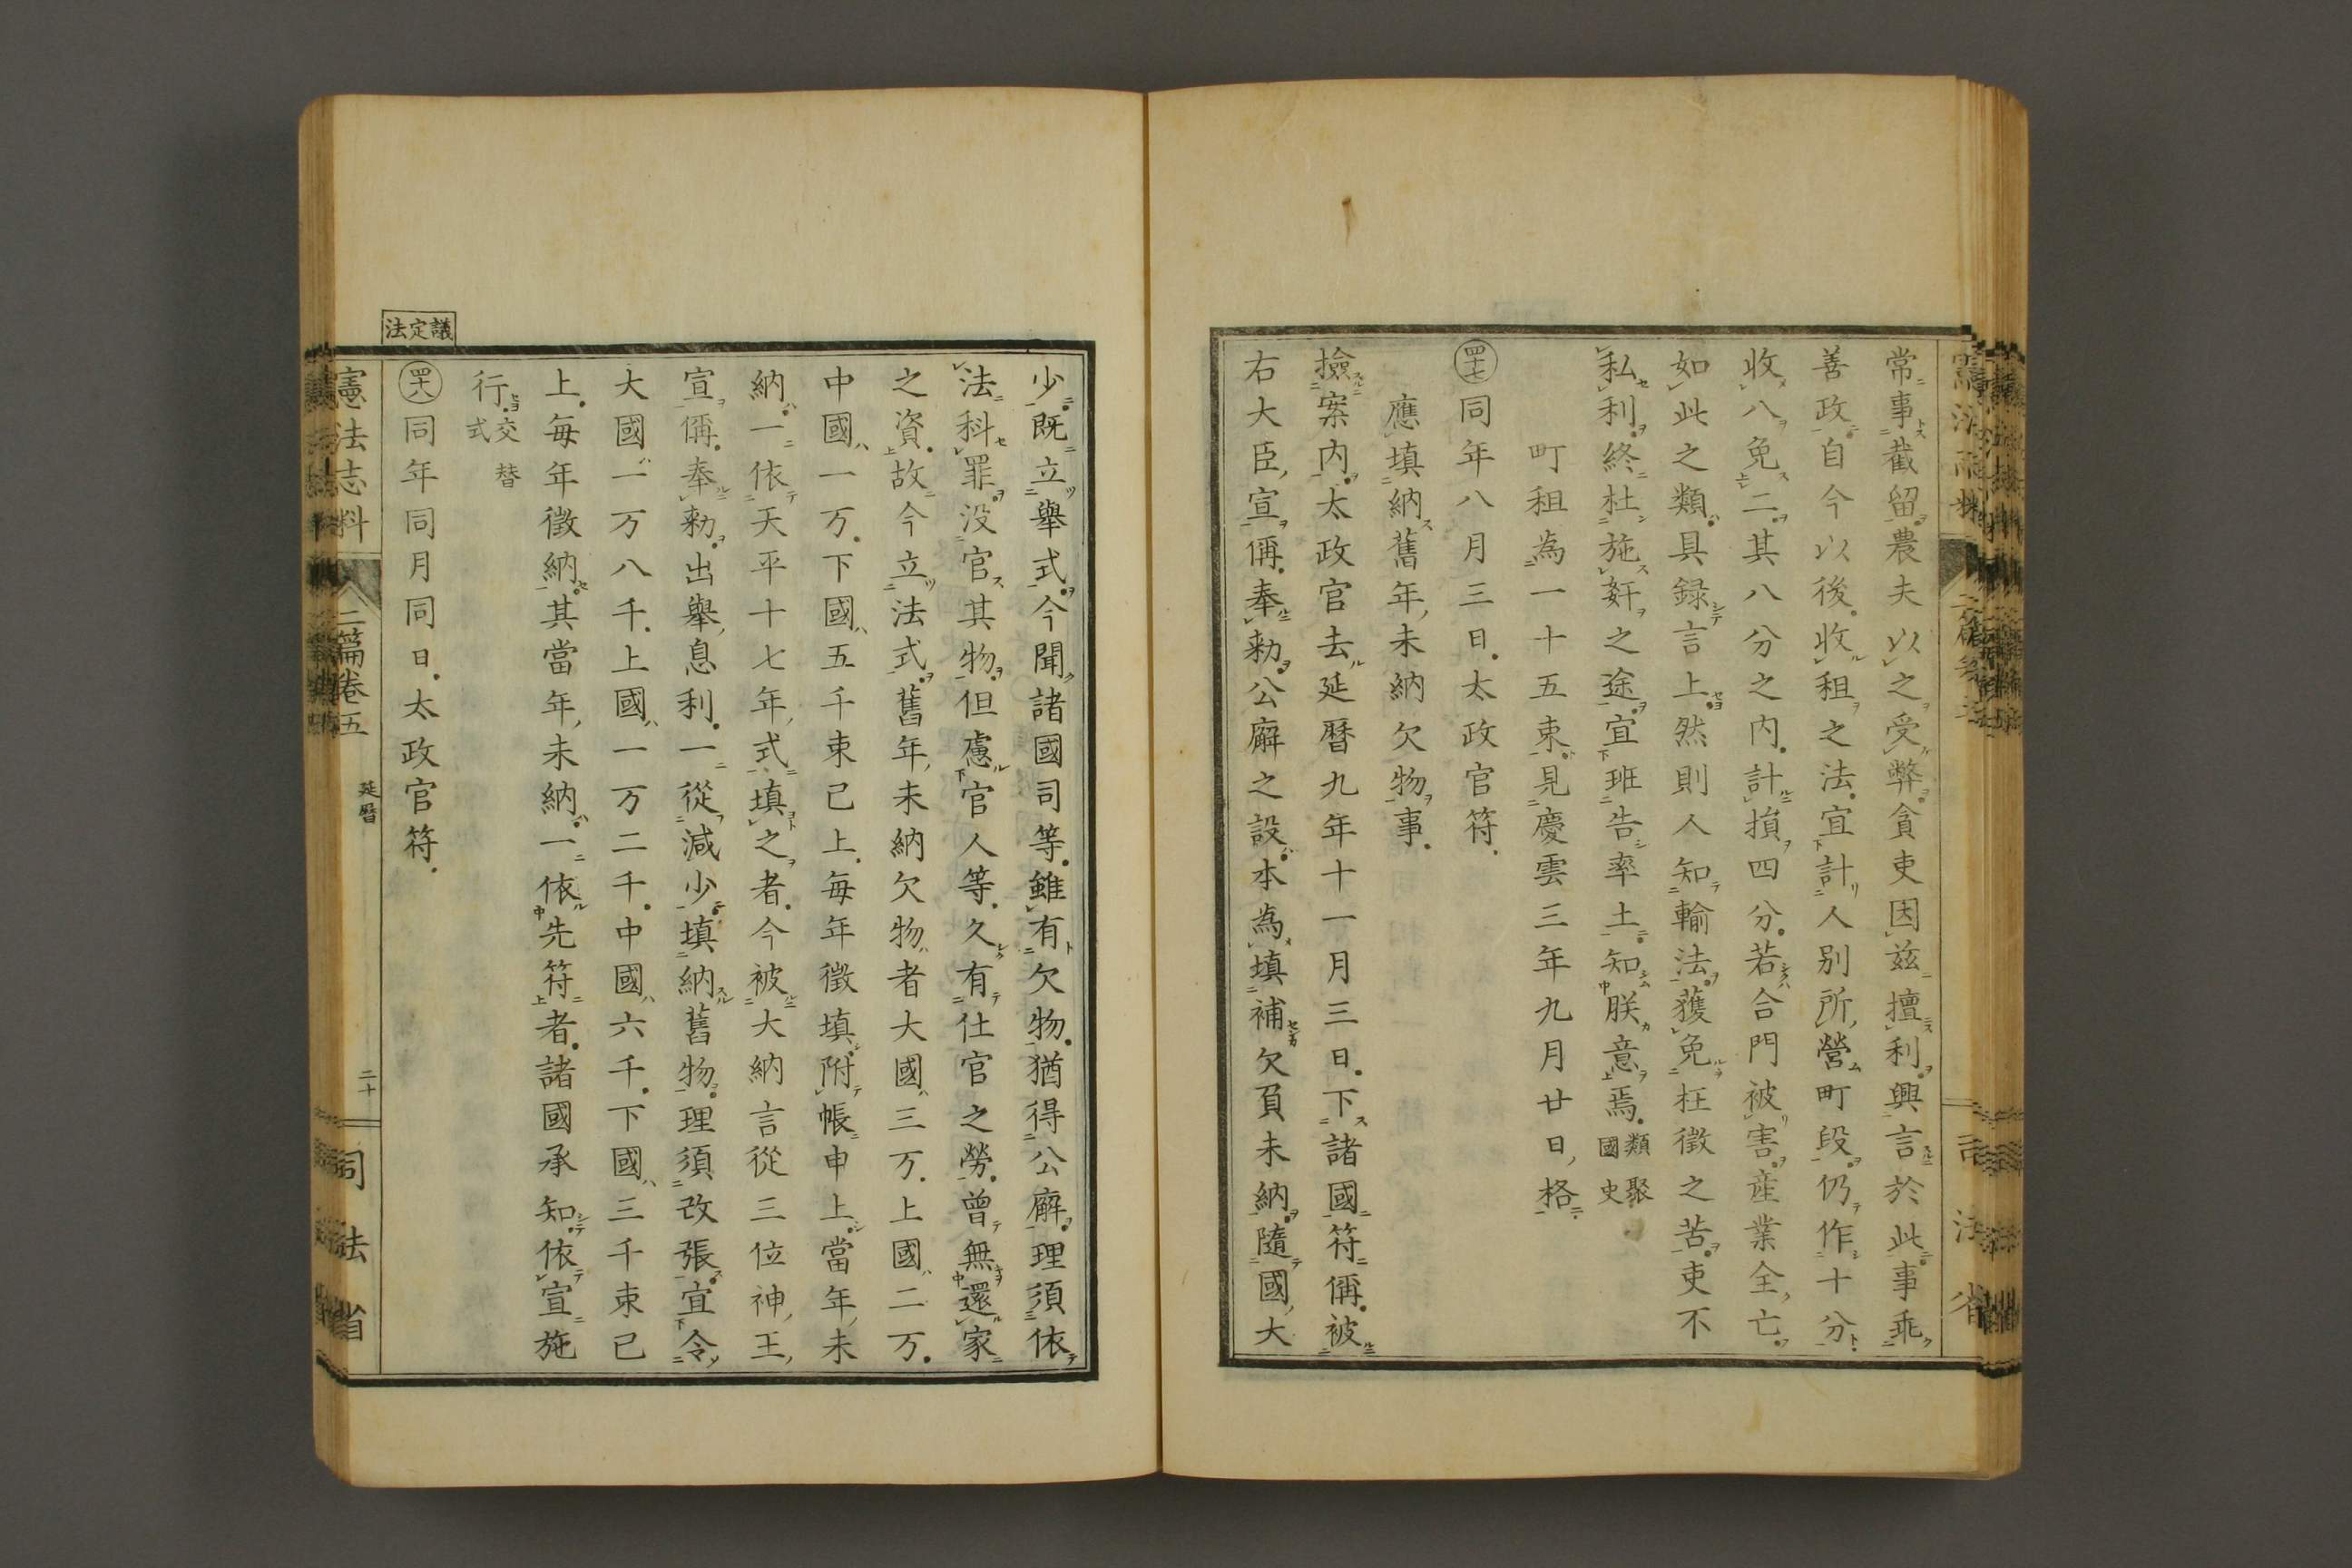 常事截留農夫以之受弊貪吏因茲擅利興言於此事乖
善政自今以後收租之法宜計人別所營町段仍作十分
收八免二其八分之内計損四分若合門被害産業全亡
如此之類具録言上然則人知輸法獲免枉徴之苦吏不
私利終杜施姧之途宜班告率土知朕意焉類聚國史
町租為一十五束見慶雲三年九月廿日格
㊼同年八月三日太政官符
應填納舊年未納欠物事
撿案内太政官去延曆九年十一月三日下諸國符偁被
右大臣宣偁奉勅公廨之設本為填補欠負未納隨國大
少既立擧式今聞諸國司等雖有欠物猶得公廨理須依
法科罪没官其物但慮官人等久有仕官之勞曾無還家
之資故今立法式舊年未納欠物者大國三万上國二万
中國一万下國五千束已上毎年徴填附帳申上當年未
納一依天平十七年式填之者今被大納言從三位神王
宣偁奉勅出擧息利一從減少填納舊物理須改張宜令
大國一万八千上國一万二千中國六千下國三千束已
上毎年徴納其當年未納一依先符者諸國承知依宣施
行交替式
議定法
㊽同年同月同日太政官符
憲法志料 二篇卷五 延曆 二十 司法省